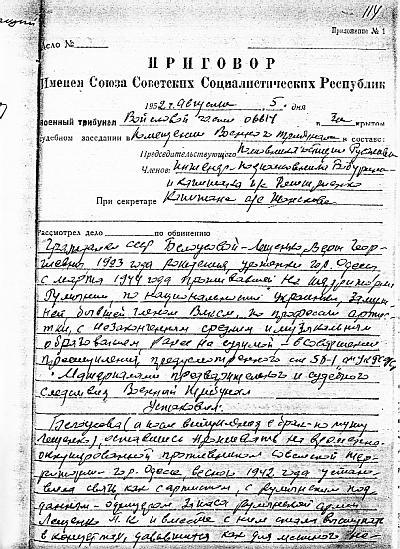 114
Приложение № 1
Дело №
ПРИГОВОР
Именем Союза Советских Социалистических Республик
1952 г. августа 5. дня
военный трибунал Войсковой части 06614 в за крытом
судебном заседании в помещении Военного трибунала в составе:
Председательствующего
Членов:
При секретаре
Рассмотрел дело по обвинению
Гражданки СССР Белоусовой-Лещенко, Веры Геор-
гиевны 1923 года рождения уроженки гор. Одессы
с марта 1944 года проживавшей на территории
Румынии, по национальности украинки,
ной бывшей членом ВЛКСМ, по профессии артис-
тки, с незаконченным средним и музыкальным
образованием ранее не судимой - в совершении
преступления, предусмотренного ст 58-1 "а" УК РСФСР,
Материалами предварительного и судебного
следствия Военный трибунал
Установил:
Белоусова (а после вступления в брак - по мужу
Лещенко), оставшись проживать на временно-
оккупированной противником советской тер-
ритории - гор. Одессе весной 1942 года устано-
вила связь как с артистом, с румынским под-
данным - офицером запаса румынской армии
Лещенко П.К. и вместе с ним стала выступать
в концертах, дававшихся как для местного на-